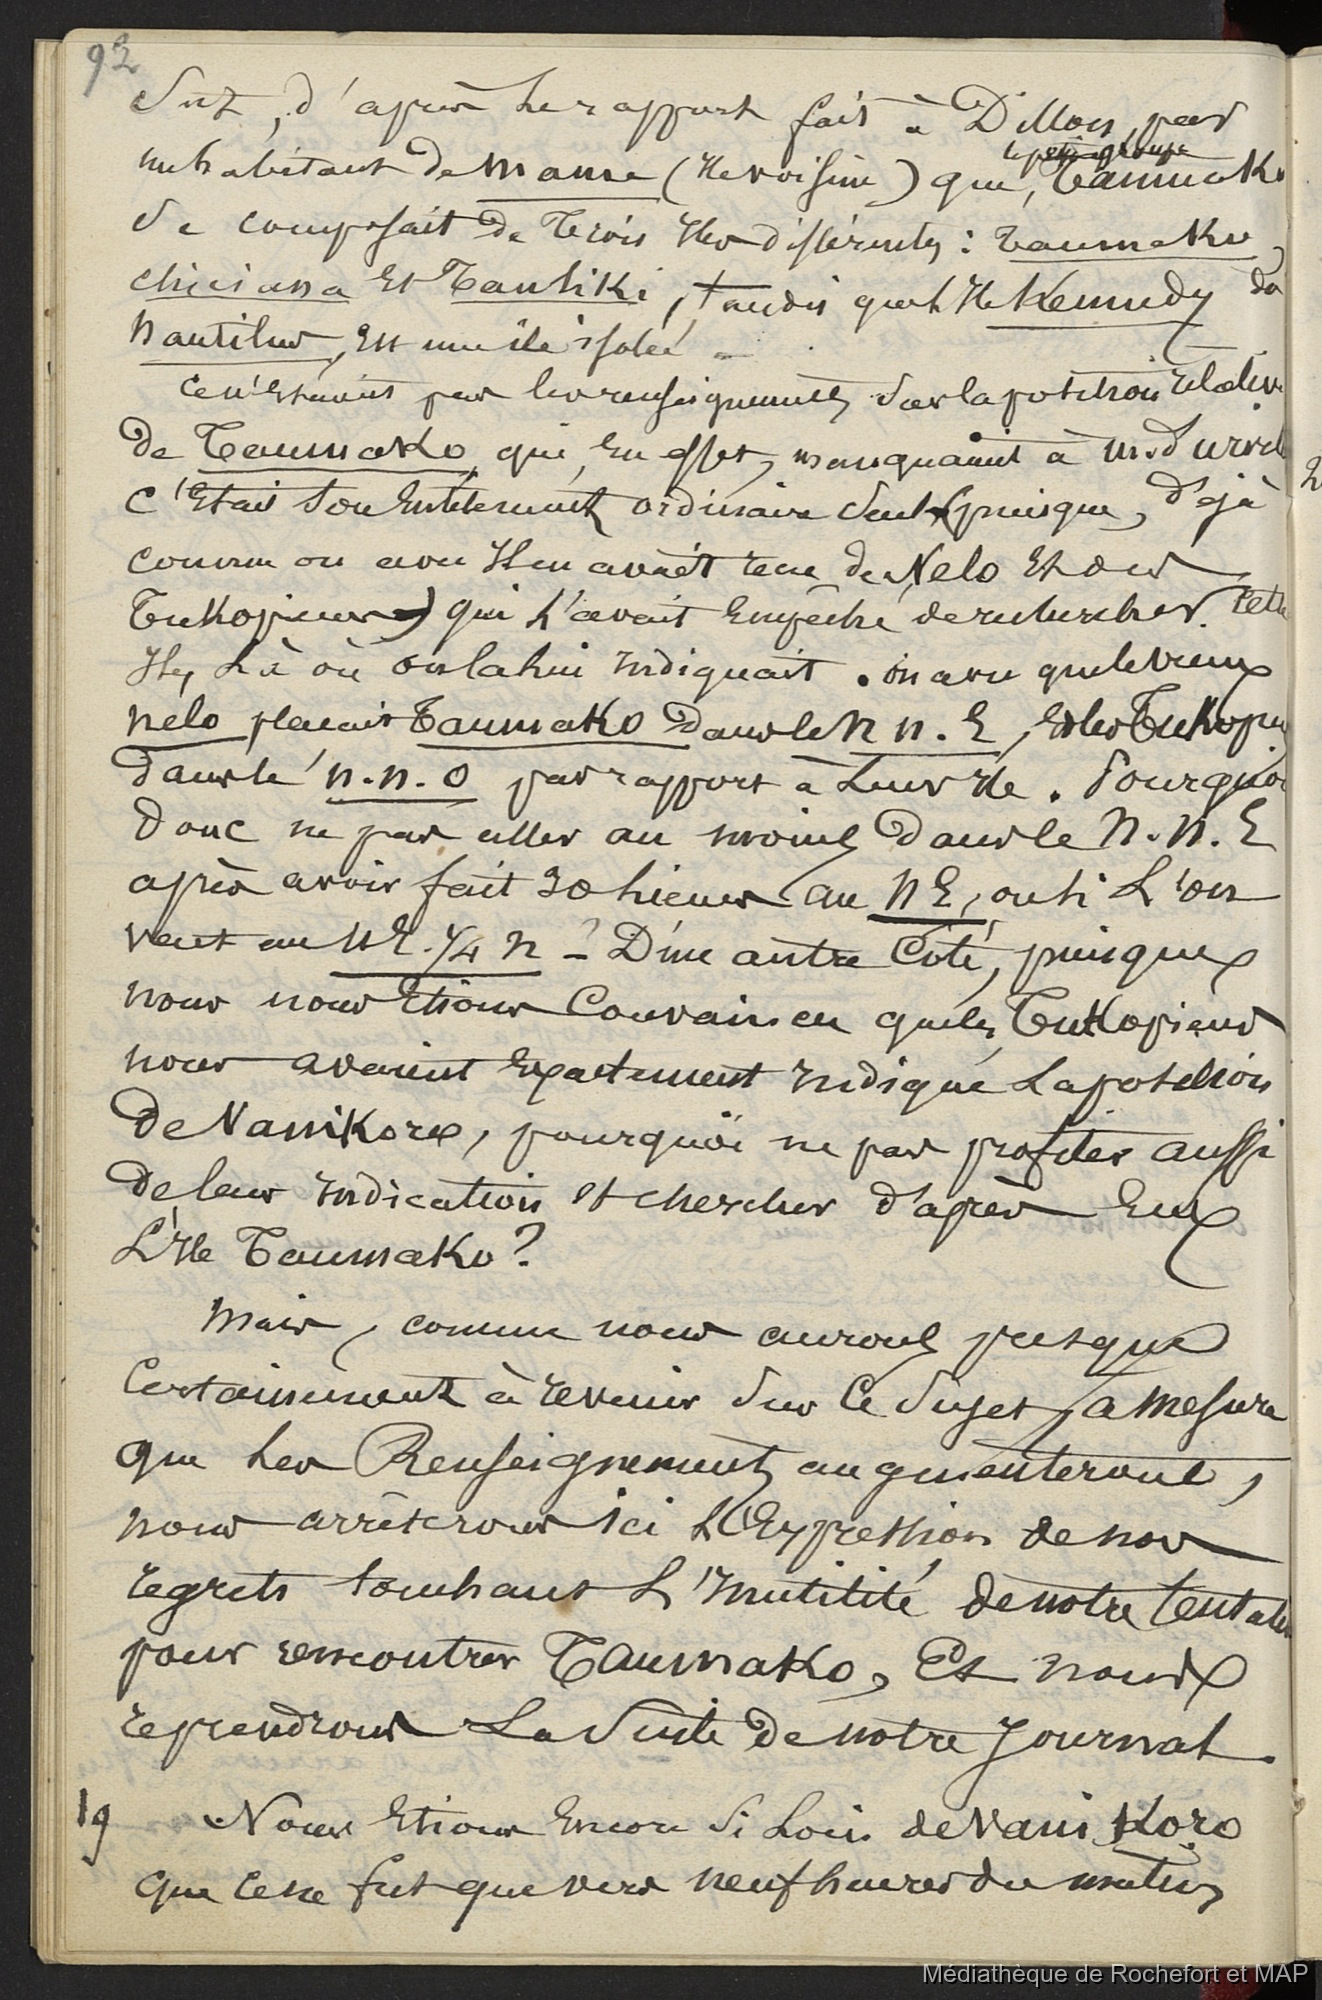 92
Suz, d'après le rapport fait à Dillon, par
un habitant de Mame (Ile voisine) que, le petit groupe Taumako
Se composait de Trois Iles différentes : Taumako,
chiciana et Tauliki, tandis que l'Ile Kennedy du
Nautilus, Est une île isolée –
Ce n'étaient pas les renseignements Sur la position relative
de Taumako, qui, En effet, manquaient à M. d'Urville
C'Etait Son Entêtement ordinaire Seul (puisque, déjà
comme on a vu Il en avait reçu de Nelo Et des
Tukopiens) qui l'avait Empêché de rechercher cette
Ile, Là où on la lui Indiquait. on a vu que le vieux
Nelo plaçait Taumako Dans le N N. E, Et les Tukopiens
Dans le N. N. O par rapport à Leur Ile. Pourquoi
Donc ne pas aller au moins Dans le N. N. E
après avoir fait 30 lieues au N E, ou Si L'on
veut au N E. 1/4 N ? – D'une autre Coté, puisque
nous nous Etions Convaincu que les Tukopiens
nous avaient Exactement Indiqué La position
De Vanikoro, pourquoi ne pas profiter aussi
De leur Indication et chercher d'après Eux
L'Ile Taumako ?
Mais, comme nous aurons presque
Certainement à revenir Sur Ce Sujet, a mesure
que Les Renseignements augmenteront,
nous arrêterons Ici L'Expression de nos
regrets touchant L'Inutilité de notre tentative
pour rencontrer Taumako, Et nous
reprendrons La Suite de notre Journal.
19 Nous Etions Encore Si Loin de Vanikoro
que Ce ne fut que vers neuf heures du matin,
Médiathèque de Rochefort et MAP